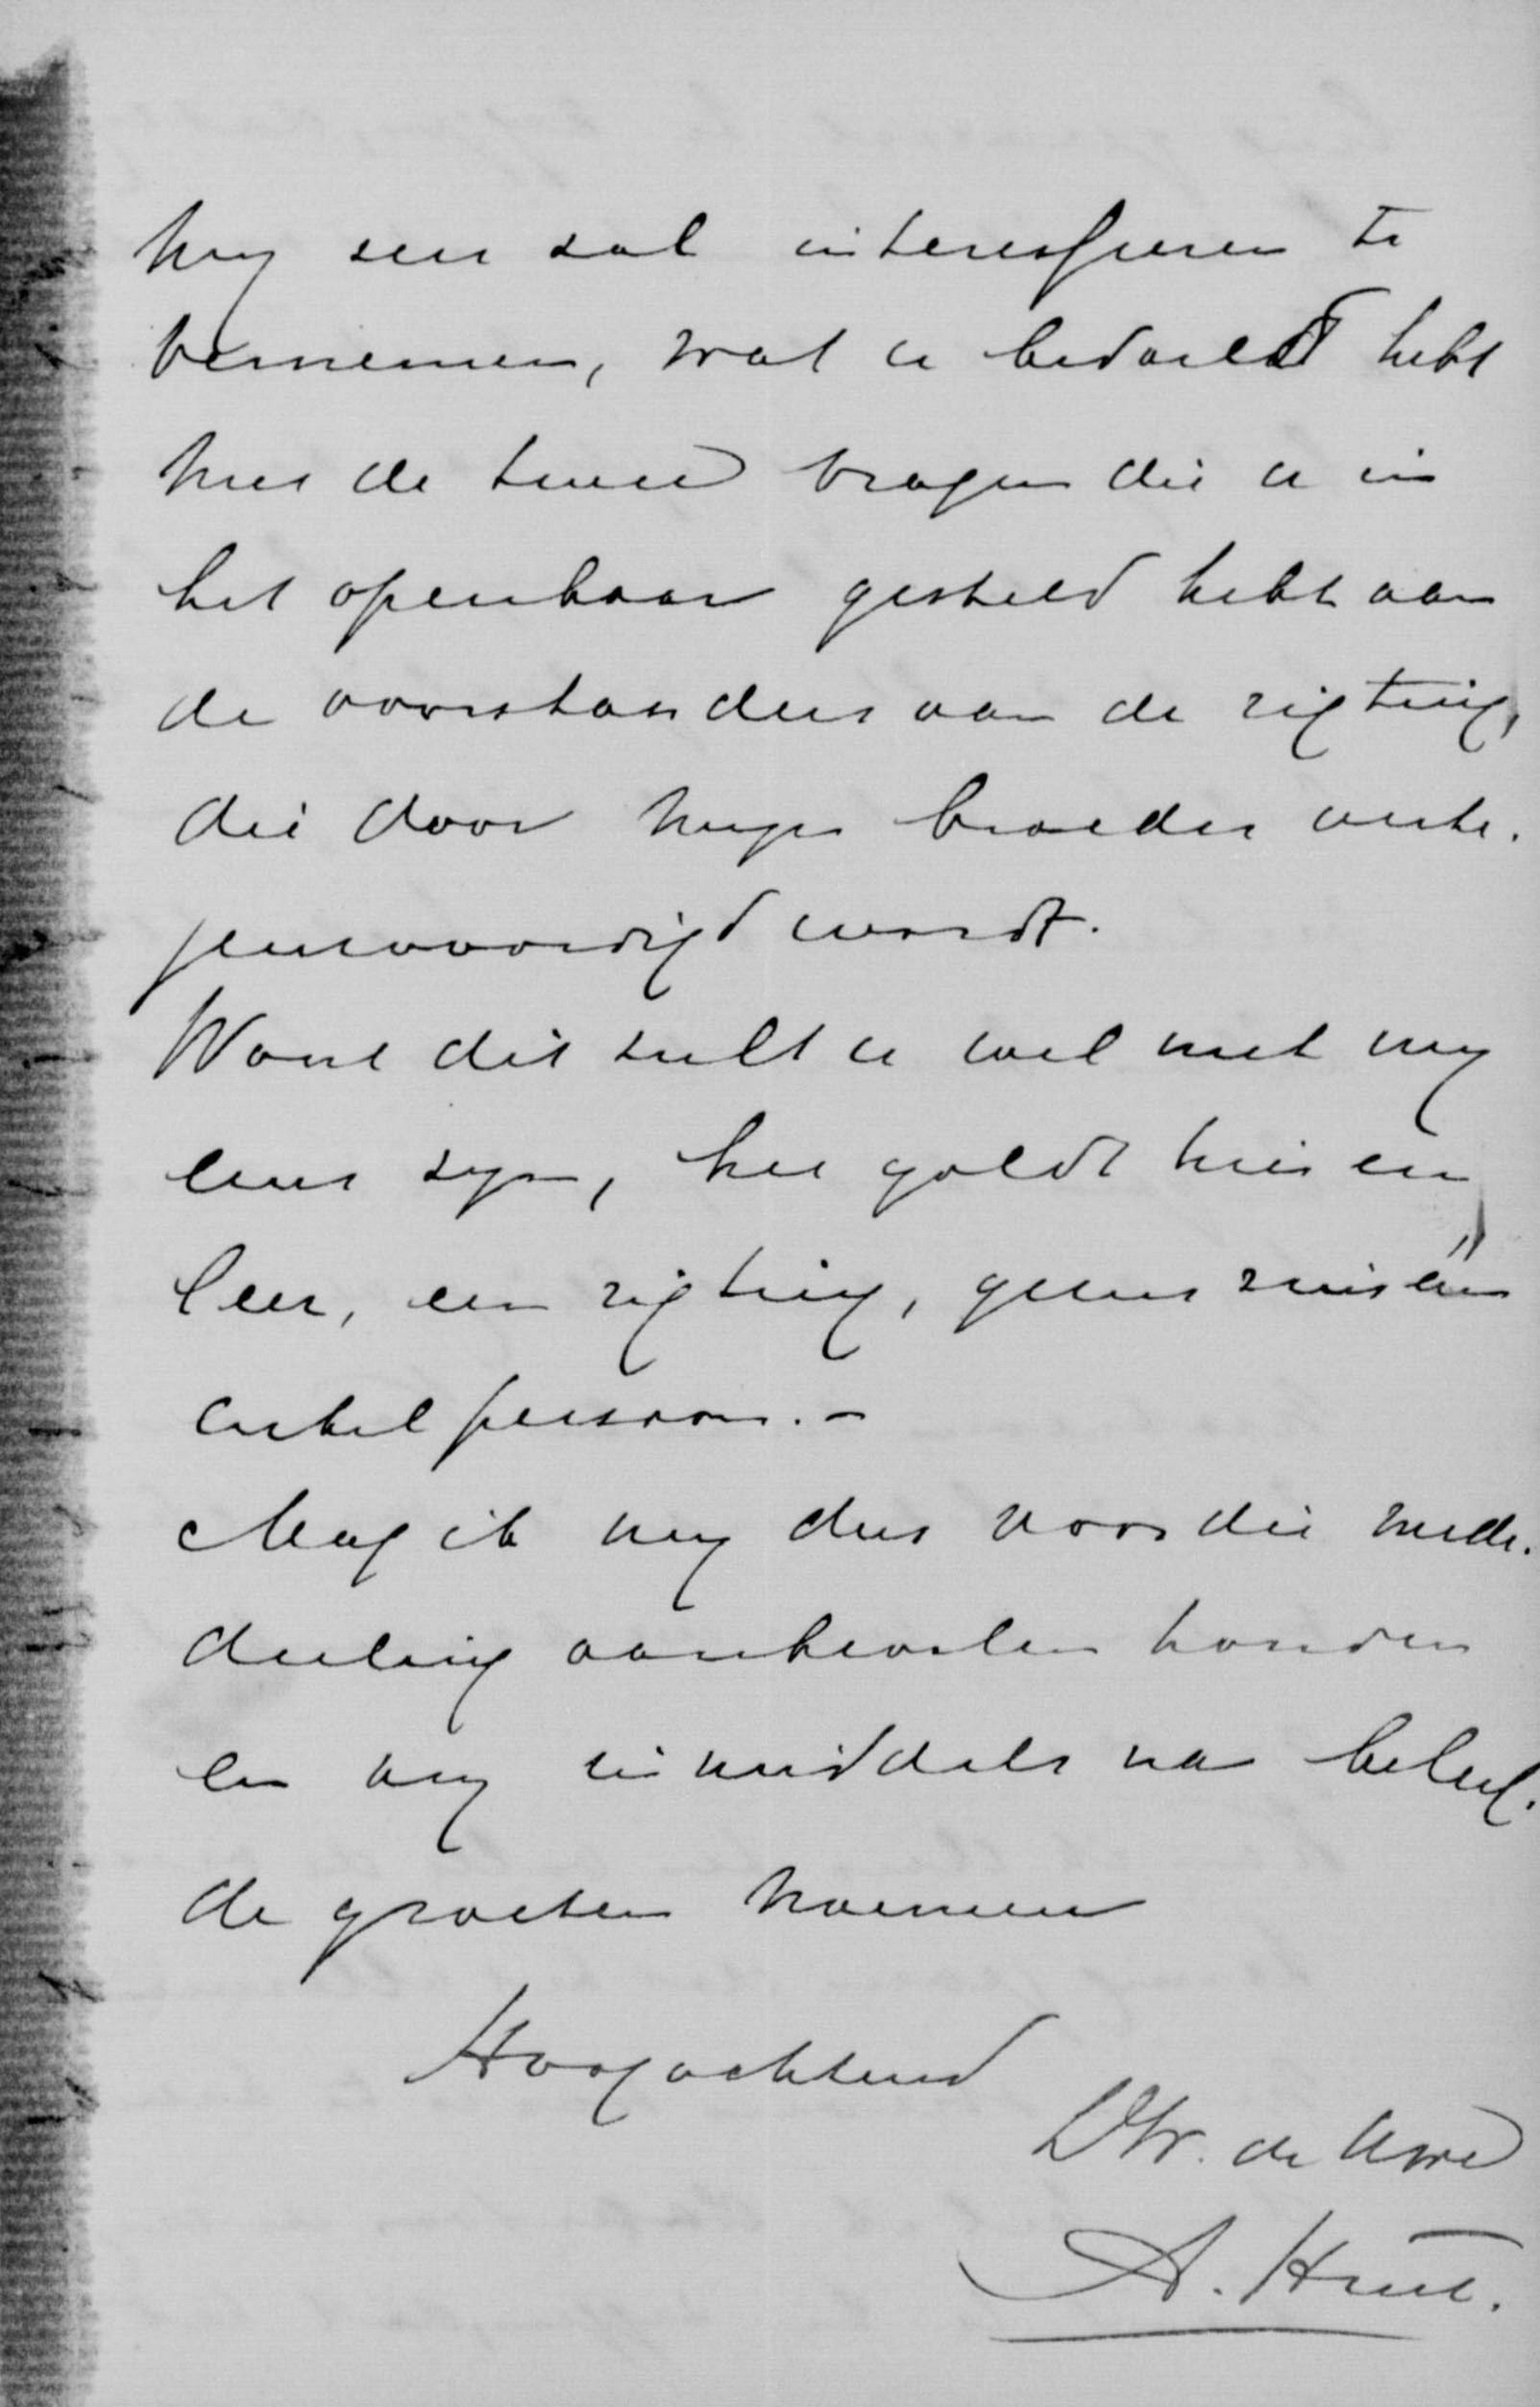 my zeer zal interesseren te
vernemen, wat u bedoeld hebt
met de twee vragen die u in
het openbaar gesteld hebt aan
de voorstanders van de rigting,
die door mijn broeder verte-
genwoordigd wordt.
Want dit zult u wel met my
eens zyn, het geldt hier een
leer, een rigting, geenszins een
enkel persoon. -
Mag ik my dus voor die mede-
deeling aanbevolen houden
en my inmiddels na beleef-
de groeten noemen
Hoogachtend
Dw. de Uwe